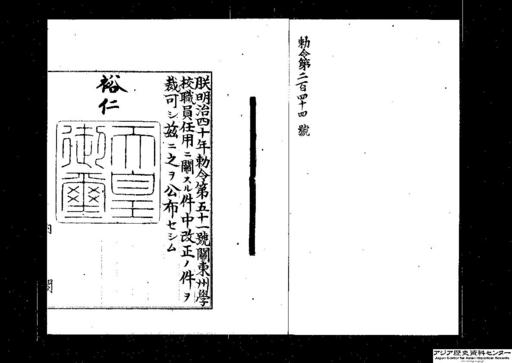 勅令第二百四十四號
朕明治四十年勅令第五十一號關東州學
校職員任用ニ關スル件中改正ノ件ヲ
裁可シ茲ニ之ヲ公布セシム
裕仁
天皇
御璽
内閣
アジア歴史資料センター
Japan Center for Asian Historical Records